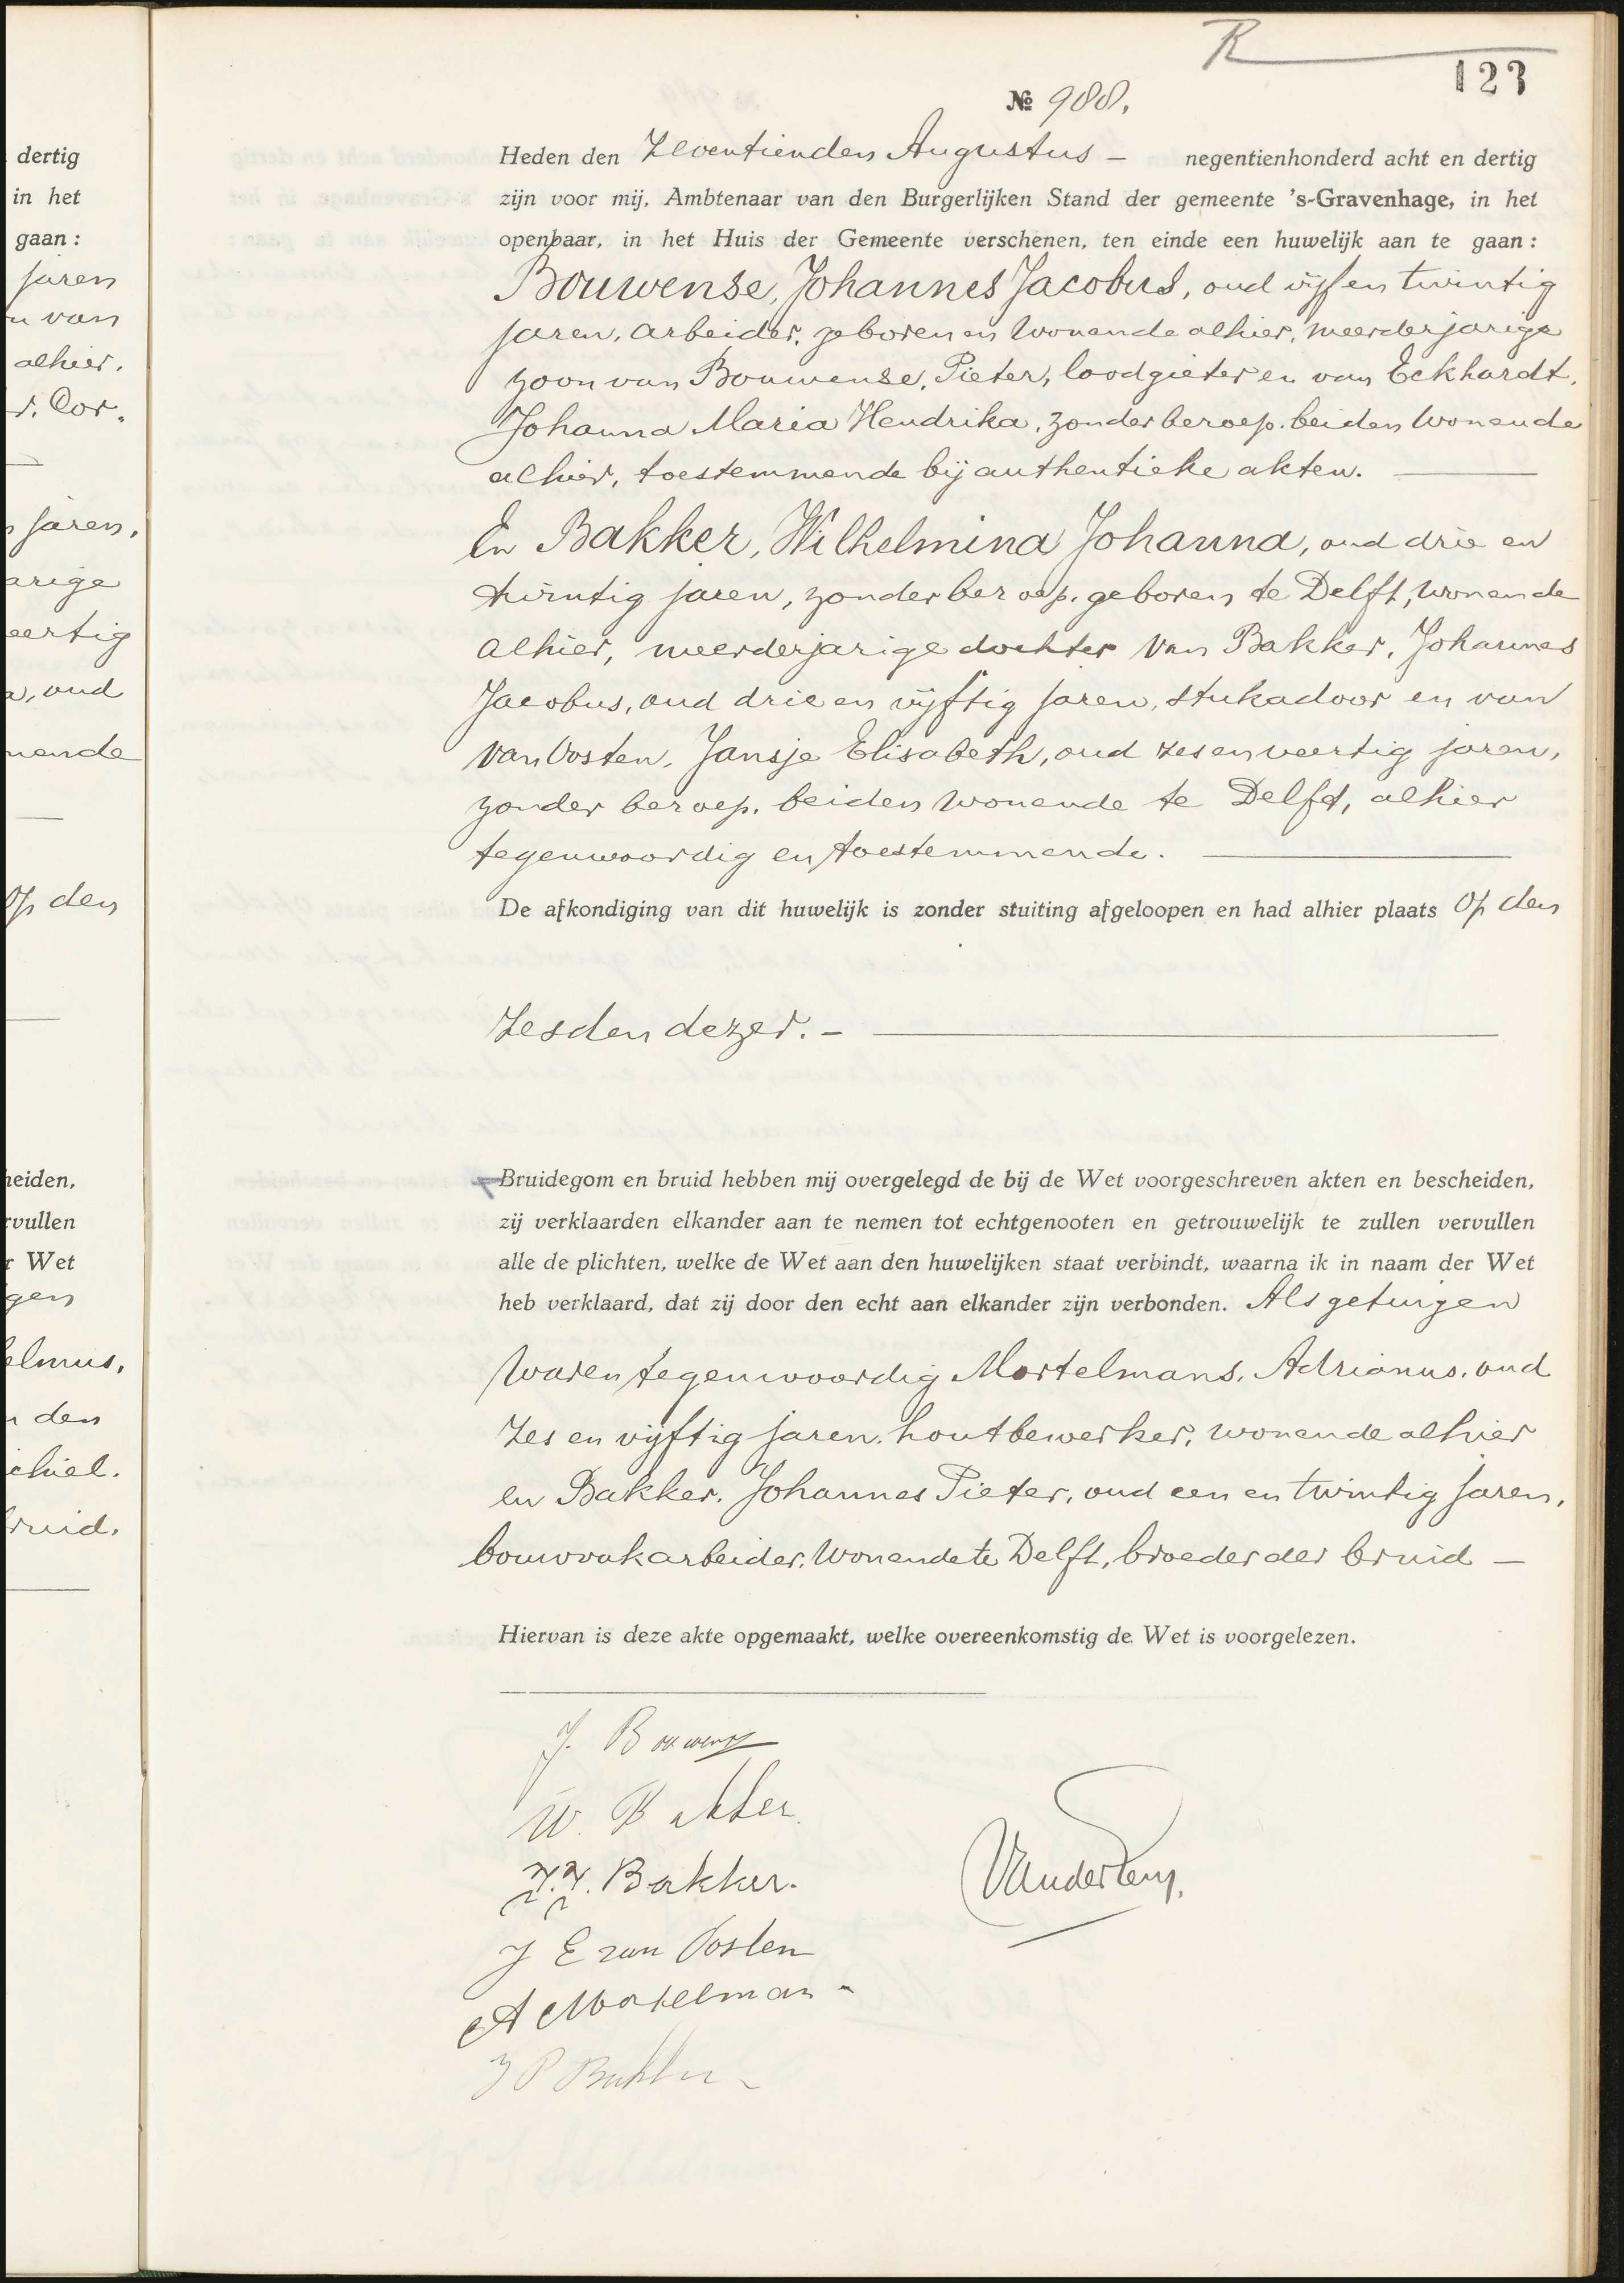 R
123
№ 988.
Heden den Zeventienden Augustus — negentienhonderd acht en dertig
zijn voor mij, Ambtenaar van den Burgerlijken Stand der gemeente 's-Gravenhage, in het
openbaar, in het Huis der Gemeente verschenen, ten einde een huwelijk aan te gaan:
Bouwense, Johannes Jacobus, oud vijf en twintig
jaren, arbeider, geboren en wonende alhier, meerderjarige
zoon van Bouwense, Pieter, loodgieter en van Eckhardt,
Johanna Maria Hendrika, zonder beroep, beiden wonende
alhier, toestemmende bij authentieke akten. —
En Bakker, Wilhelmina Johanna, oud drie en
twintig jaren, zonder beroep, geboren te Delft, wonende
alhier, meerderjarige dochter van Bakker, Johannes
Jacobus, oud drie en vijftig jaren, stukadoor en van
van Oosten, Jansje Elisabeth, oud zes en veertig jaren,
zonder beroep, beiden wonende te Delft, alhier
tegenwoordig en toestemmende. —
De afkondiging van dit huwelijk is zonder stuiting afgeloopen en had alhier plaats op den
Zesden dezer. —
Bruidegom en bruid hebben mij overgelegd de bij de Wet voorgeschreven akten en bescheiden,
zij verklaarden elkander aan te nemen tot echtgenooten en getrouwelijk te zullen vervullen
alle de plichten, welke de Wet aan den huwelijken staat verbindt, waarna ik in naam der Wet
heb verklaard, dat zij door den echt aan elkander zijn verbonden. Als getuigen
waren tegenwoordig Mortelmans, Adrianus, oud
Zes en vijftig jaren, houtbewerker, wonende alhier
en Bakker, Johannes Pieter, oud een en twintig jaren,
bouwvakarbeider, wonende te Delft, broeder der bruid —
Hiervan is deze akte opgemaakt, welke overeenkomstig de Wet is voorgelezen.
J. Bouwense
W. Bakker
J.J. Bakker.
J E van Oosten
A Mortelmans
J P Bakker
dertig
in het
gaan:
jaren
van
alhier,
r. Cor.
jaren,
arige
eertig
oud
nende
op den
heiden,
rvullen
r Wet
gen
elmus,
den
chiel.
bruid.